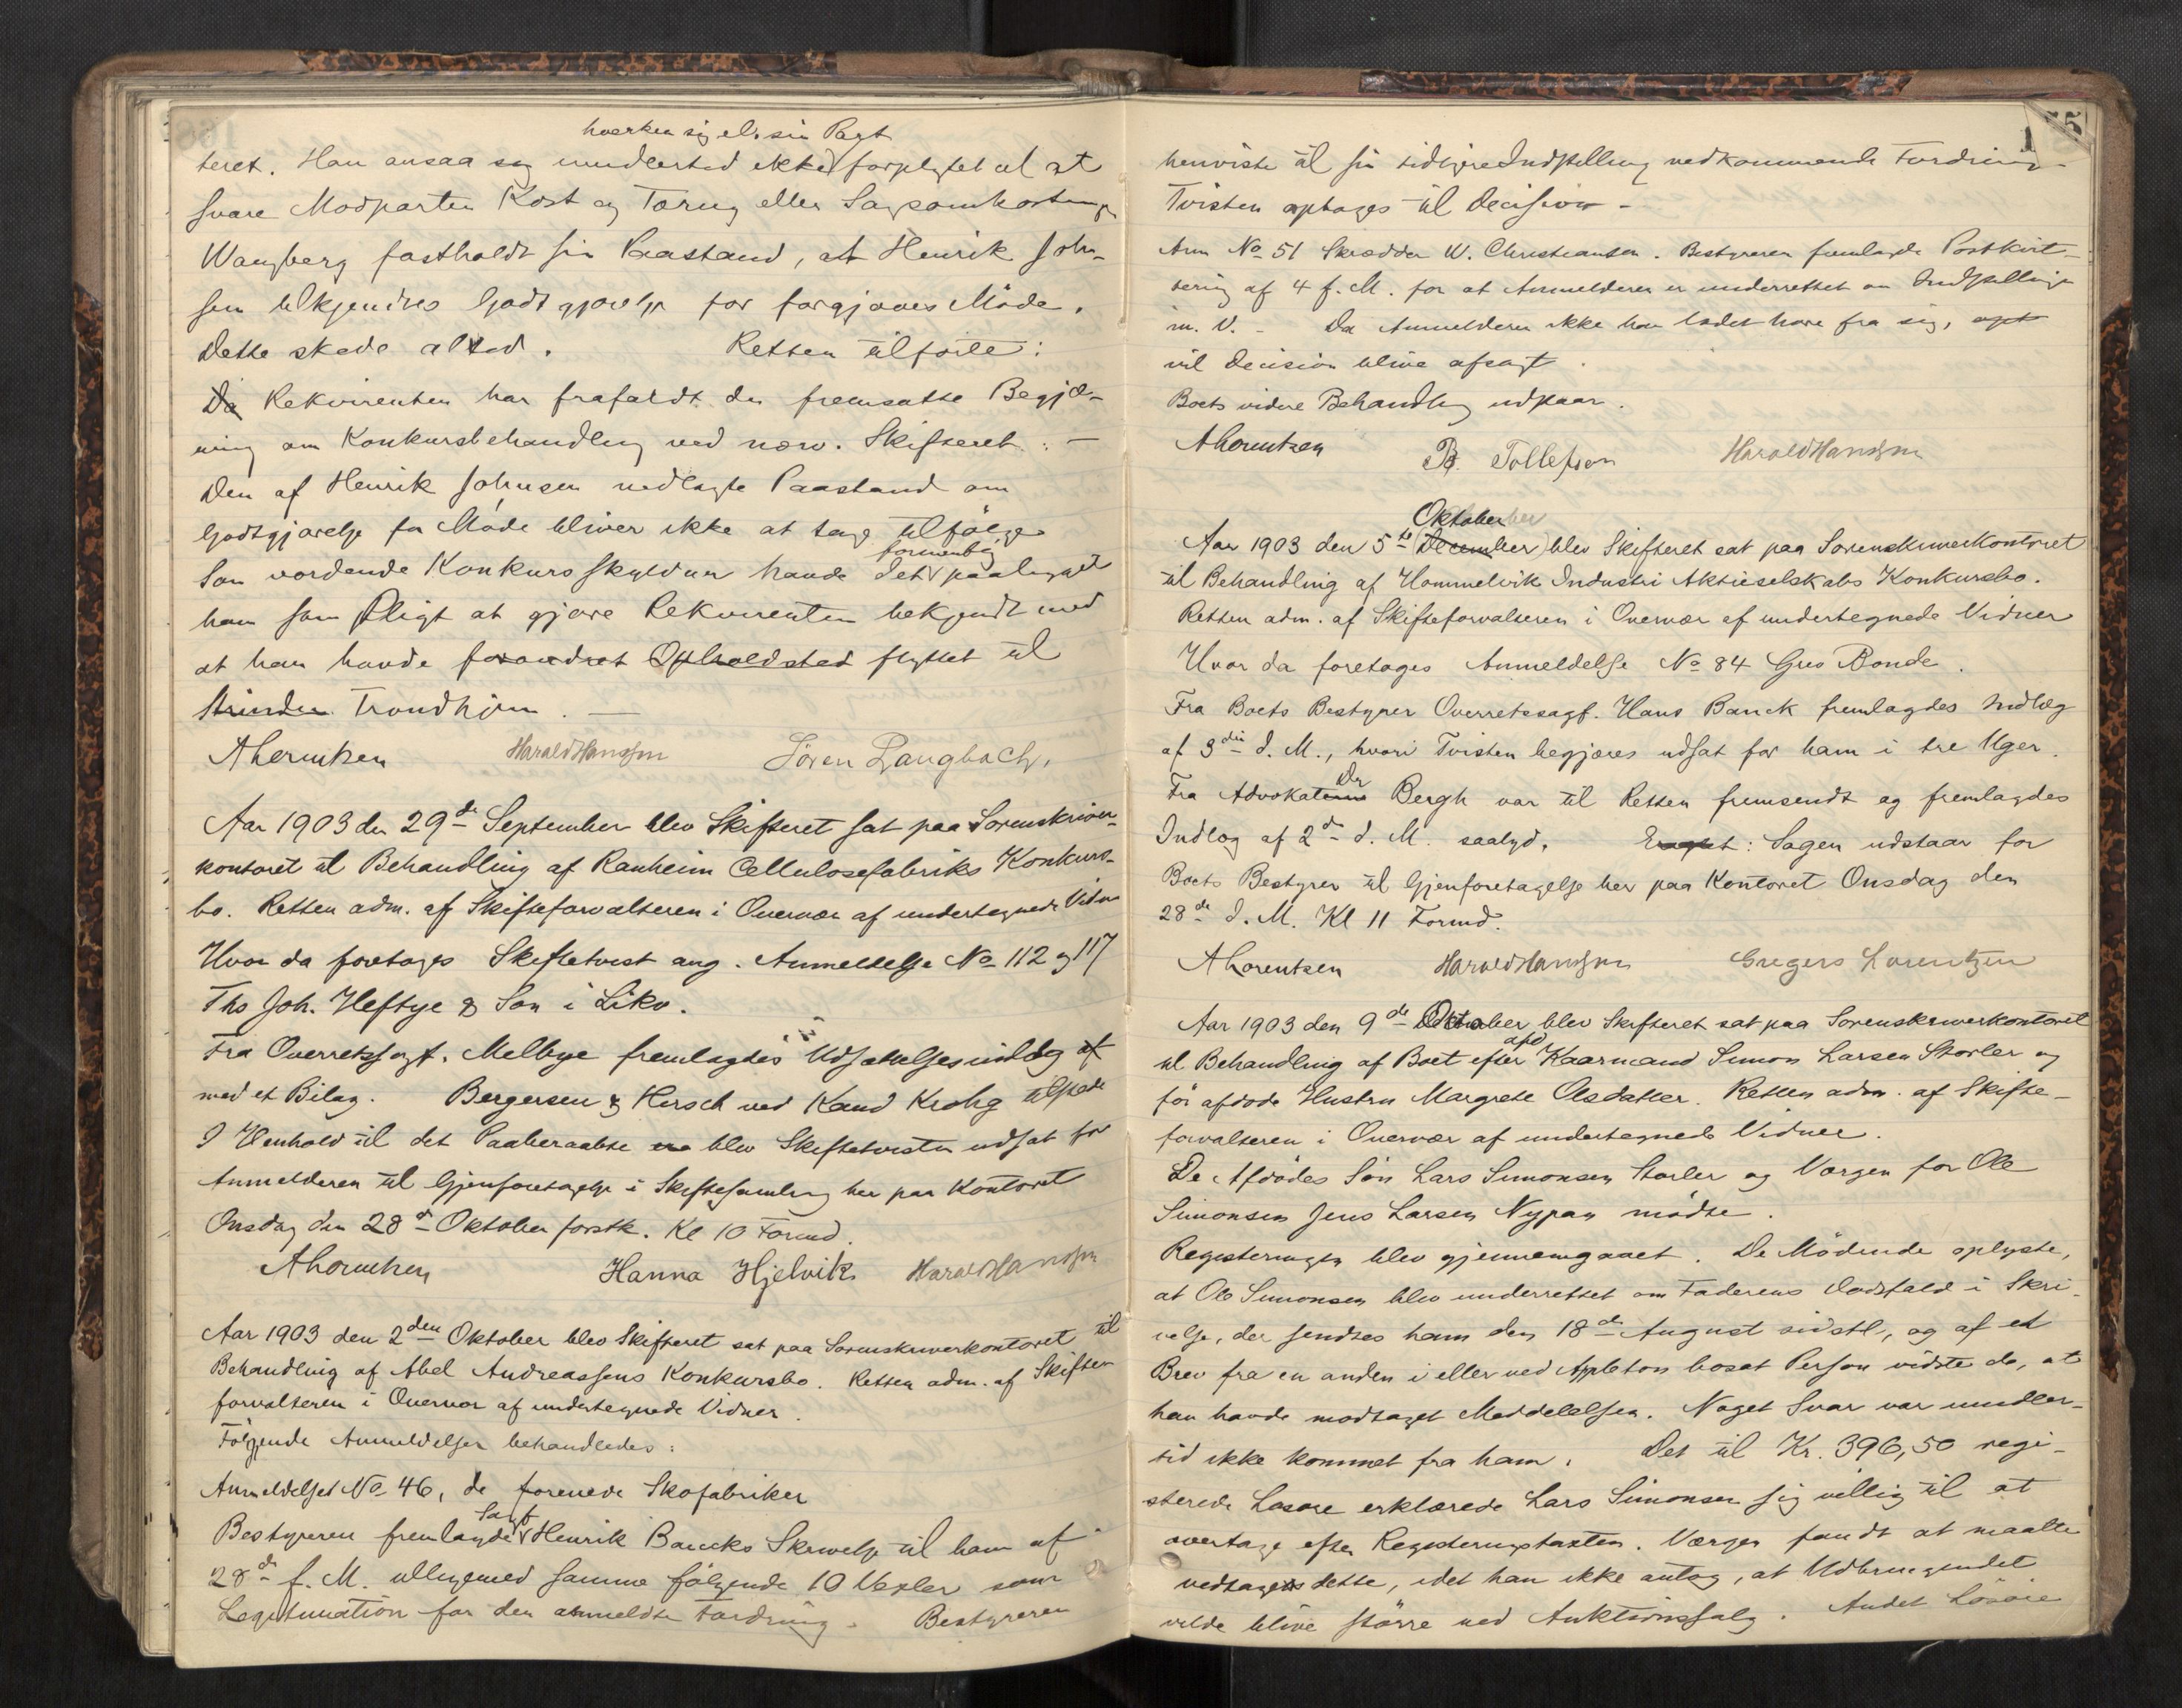 hverken sig el. sin Part
teret. Han ansaa seg imidlertid ikke forpligtet til at
svare Modparten Kost og Tæring eller Sagsomkostninger
Wangberg fastholdt sin Paastand, at Henrik John-
sen tilkjendtes Godtgjørelse for forgjæves Møde.
Dette skede altsd. Retten tilførte:
Da Rekvirenten har frafaldt den fremsatte Begjæ-
ring om Konkursbehandling ved nærv. Skifteret: —
Den af Henrik Johnsen nedlagte Paastand om
Godtgjørelse for Møde bliver ikke at tage tilfølge
formentlig
Som vordende Konkursskyldner havde det paaligget
ham som Pligt at gjøre Rekvirenten bekjendt med
at han havde forandret Opholdsted flyttet til
Strinden Trondhjem. —
ALorentzen HaraldHanssen Sören Langbach,
Aar 1903 den 29de September blev Skifteret sat paa Sorenskriver-
kontoret til Behandling af Ranheim Cellulosefabriks Konkurs-
bo. Retten adm. af Skifteforvalteren i Overvær af undertegnede Vidner
Hvor da foretages Skiftetvist ang. Anmeldelse No 112 og 117
Tho Joh. Heftye & Søn i Likv.
Fra Overretssagf. Melbye fremlagdes Udsættelsesindlæg af
med et Bilag. Bergersen & Hersch ved Kand Krohg tilstede
I Henhold til det Paaberaabte blev Skiftetvisten udsat for
Anmelderen til Gjenforetagelse i Skiftesamling her paa Kontoret
Onsdag den 28de Oktober førstk. Kl 10 Formd.
ALorentzen Hanna Hjelvik HaraldHanssen
Aar 1903 den 2den Oktober blev Skifteret sat paa Sorenskriverkontoret til
Behandling af Abel Andreassens Konkursbo. Retten adm. af Skifte-
forvalteren i Overvær af undertegnede Vidner.
Følgende Anmeldelser behandledes:
Anmeldelse No 46, de forenede Skofabriker
Sagf.
Bestyreren fremlagde Henrik Baucks Skrivelse til ham af
28de f. M. tilligemed samme følgende 10 Vexler som
Legitimation for den anmeldte Fordring. Bestyreren
155
henviste til sin tidligere Indstilling vedkommende Fordring-
Tvisten optages til Decision -
Anm No 51 Skrædder W. Christiansen. Bestyreren fremlagde Postkvit-
tering af 4 f. M. for at Anmelderen er underrettet om Indstillingen
m. V. - Da Anmelderen ikke har ladet høre fra sig, opt
vil Decision blive afsagt.
Boets videre Behandling udstaar.
ALorentzen B. Tollefsen HaraldHanssen
Oktober
Aar 1903 den 5te December blev Skifteret sat paa Sorenskriverkontoret
til Behandling af Hommelvik Industri Aktieselskabs Konkursbo.
Retten adm. af Skifteforvalteren i Overvær af undertegnede Vidner
Hvor da foretages Anmeldelse No 84 Gres Bonde.
Fra Boets Bestyrer Overretssagf. Hans Bauck fremlagdes Indlæg
af 3die d. M., hvori Tvisten begjæres udsat for ham i tre Uger.
Fra Advokaterne Bergh var til Retten fremsendt og fremlagdes
Indlæg af 2de d. M. saalyd. Eragtet: Sagen udstaar for
Boets Bestyrer til Gjenforetagelse her paa Kontoret Onsdag den
28de d. M. Kl 11 Formd.
ALorentzen HaraldHanssen Gregers Lorentzen
Aar 1903 den 9de Oktober blev Skifteret sat paa Sorenskriverkontoret
afd
til Behandling af Boet efter Kaarmand Simon Larsen Storler og
før afdøde Hustru Margrete Olsdatter. Retten adm. af Skifte-
forvalteren i Overvær af undertegnede Vidner.
De Afdødes Søn Lars Simonsen Storler og Værgen for Ole
Simonsen Jens Larsen Nypan mødte.
Registeringen blev gjennemgaaet. De Mödende oplyste,
at Ole Simonsen blev underrettet om Faderens Dødsfald i Skri-
velse, der sendtes ham den 18de August sidstl., og af et
Brev fra en anden i eller ved Appleton bosat Person vidste de, at
han havde modtaget Meddelelsen. Noget Svar var imidler-
tid ikke kommet fra ham. Det til Kr. 396,50 regi-
sterede Løsøre erklærede Lars Simonsen sig villig til at
overtage efter Registeringstaxten. Værgen fandt at maatte
vedtages dette, idet han ikke antog, at Udbringendet
vilde blive større ved Auktionssalg. Andet Løsøre